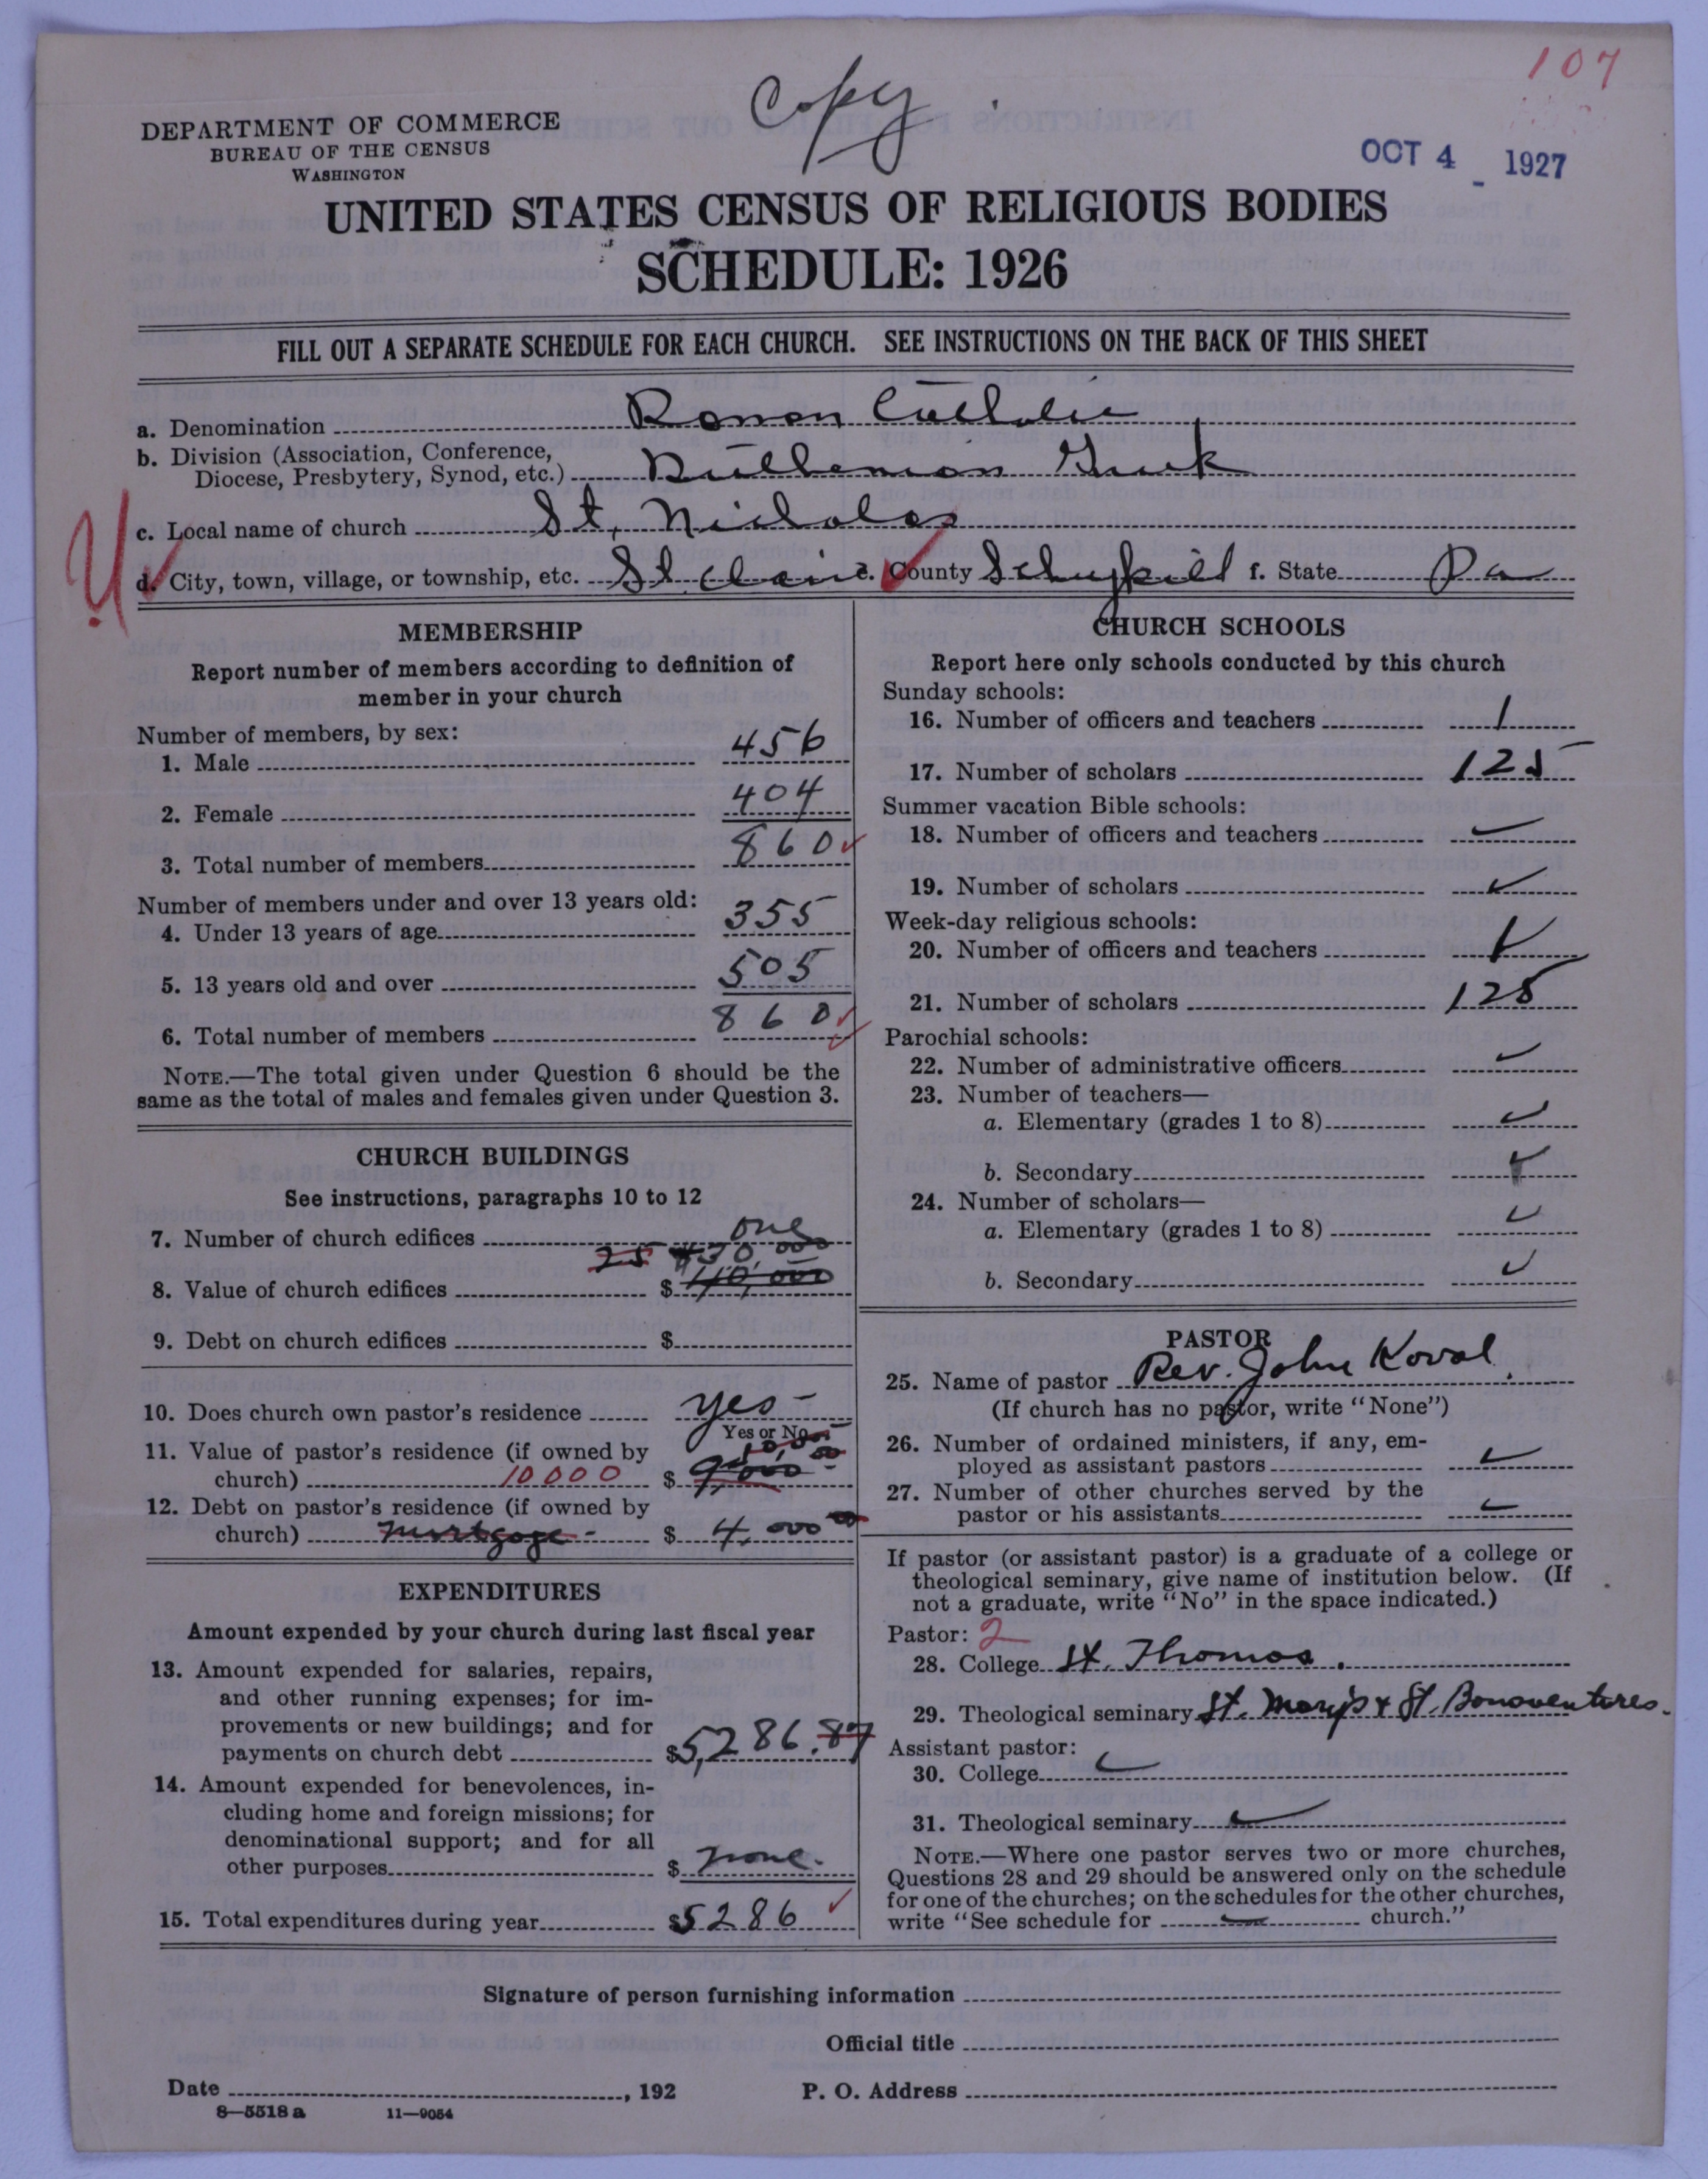 107
Copy
DEPARTMENT OF COMMERCE
BUREAU OF THE CENSUS
WASHINGTON
OCT 4 1927
UNITED STATES CENSUS OF RELIGIOUS BODIES
SCHEDULE: 1926
FILL OUT A SEPARATE SCHEDULE FOR EACH CHURCH. SEE INSTRUCTIONS ON THE BACK OF THIS SHEET
a. Denomination Roman Catholic
b. Division (Association, Conference,
Diocese, Presbytery, Synod, etc.) Ruthenian Greek
c. Local name of church St. Nicholas
d. City, town, village, or township, etc. St. Clair e. County Schuykill f. State Pa
MEMBERSHIP
Report number of members according to definition of
member in your church
Number of members, by sex:
1. Male 456
2. Female 404
3. Total number of members 860
Number of members under and over 13 years old:
4. Under 13 years of age 355
5. 13 years old and over 505
6. Total number of members 860
NOTE.—The total given under Question 6 should be the
same as the total of males and females given under Question 3.
CHURCH BUILDINGS
See instructions, paragraphs 10 to 12
7. Number of church edifices one
25 $30,000
8. Value of church edifices $ 110,000
9. Debt on church edifices $
10. Does church own pastor's residence yes -
Yes or No
11. Value of pastor's residence (if owned by
10,000
church) 10000 $ 9,000
12. Debt on pastor's residence (if owned by
church) mortgage - $ 4,000 00
EXPENDITURES
Amount expended by your church during last fiscal year
13. Amount expended for salaries, repairs,
and other running expenses; for im-
provements or new buildings; and for
payments on church debt $5,286.87
14. Amount expended for benevolences, in-
cluding home and foreign missions; for
denominational support; and for all
other purposes $ none.
15. Total expenditures during year $5286
CHURCH SCHOOLS
Report here only schools conducted by this church
Sunday schools:
16. Number of officers and teachers 1
17. Number of scholars 125
Summer vacation Bible schools:
18. Number of officers and teachers
19. Number of scholars
Week-day religious schools:
20. Number of officers and teachers
21. Number of scholars 125
Parochial schools:
22. Number of administrative officers
23. Number of teachers—
a. Elementary (grades 1 to 8)
b. Secondary
24. Number of scholars—
a. Elementary (grades 1 to 8)
b. Secondary
PASTOR
25. Name of pastor Rev. John Koval
(If church has no pastor, write "None")
26. Number of ordained ministers, if any, em-
ployed as assistant pastors
27. Number of other churches served by the
pastor or his assistants
If pastor (or assistant pastor) is a graduate of a college or
theological seminary, give name of institution below. (If
not a graduate, write "No" in the space indicated.)
Pastor: 2
28. College St. Thomas.
29. Theological seminary St. Mary's & St. Bonaventures.
Assistant pastor:
30. College
31. Theological seminary
NOTE.—Where one pastor serves two or more churches,
Questions 28 and 29 should be answered only on the schedule
for one of the churches; on the schedules for the other churches,
write "See schedule for church."
Signature of person furnishing information
Official title
Date , 192 P. O. Address
8—5518a 11—9054